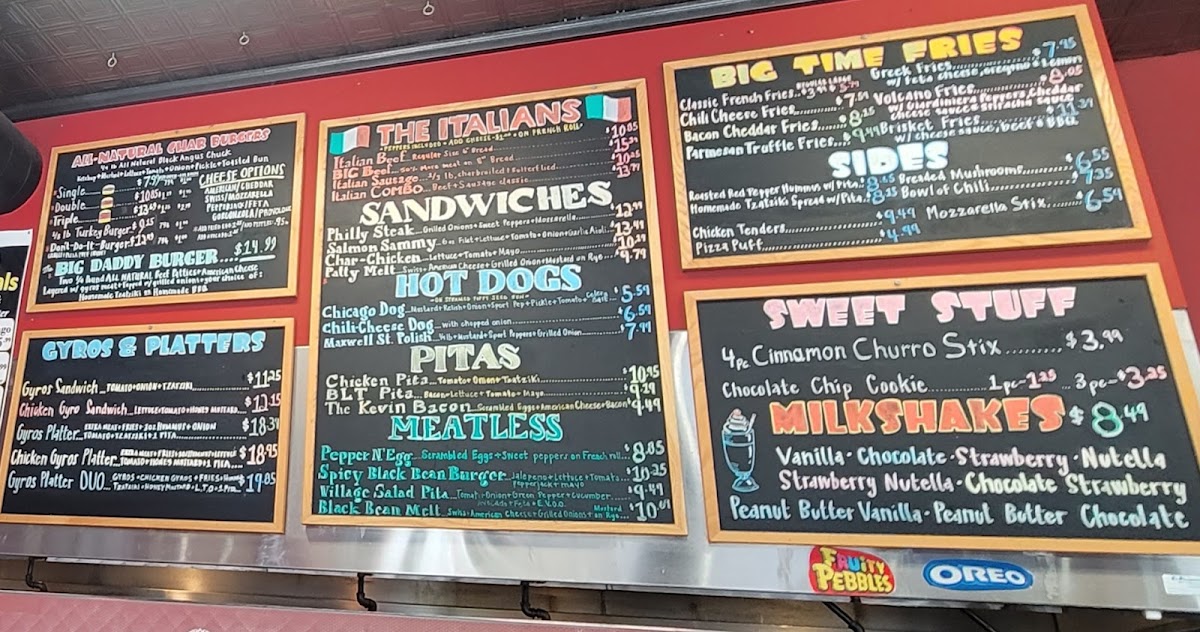 ALL-NATURAL CHAR BURGERS
1/4 lb All Natural Black Angus Chuck
Ketchup+Mustard+Lettuce+Tomato+Onion+Pickle+Toasted Bun
CHEESE OPTIONS
AMERICAN/CHEDDAR
SWISS/MOZZARELLA
PEPPERJACK/FETA
GORGONZOLA/PROVOLONE
Single
Double
Triple
1/4 lb Turkey Burger
Don't-Do-It-Burger
The BIG DADDY BURGER....$14.99
Two 1/4 Pound ALL NATURAL Beef Patties+American Cheese
Layered w/ gyros meat+topped w/ grilled onions+your choice of:
Homemade Tzatziki or Homemade BBQ
GYROS & PLATTERS
Gyros Sandwich...TOMATO+ONION+TZATZIKI...$11.25
Chicken Gyro Sandwich...LETTUCE+TOMATO+HONEY MUSTARD...
Gyros Platter...EXTRA MEAT+FRIES+HUMMUS+ONION TOMATO+TZATZIKI+1 PITA...
Chicken Gyros Platter...TOMATO+HONEY MUSTARD+1 PITA...$18.95
Gyros Platter DUO...GYROS+CHICKEN GYROS+FRIES+HUMMUS TZATZIKI+HONEY MUSTARD+L,T,O+2 PITA...
THE ITALIANS
PEPPERS INCLUDED - ADD CHEESE - ON FRENCH ROLL
Italian Beef Regular Size 6" Bread...$10.85
BIG Beef 50% More Meat on 8" Bread
Italian Sausage 1/3 lb, charbroiled & butterflied
Italian Combo Beef+Sausage classic
SANDWICHES
Philly Steak...Grilled Onions+Sweet Peppers+Mozzarella...$12.99
Salmon Sammy...6oz Filet+Lettuce+Tomato+Onion+Garlic Aioli...
Char-Chicken...Lettuce+Tomato+Mayo...
Patty Melt...Swiss+American Cheese+Grilled Onion+Mustard on Rye...
HOT DOGS
ON STEAMED POPPY SEED BUN
Chicago Dog...Mustard+Relish+Onion+Sport Pep+Pickle+Tomato+Celery Salt...$5.59
Chili-Cheese Dog...with chopped onion...$6.59
Maxwell St. Polish...1/4 lb+Mustard+Sport Peppers+Grilled Onion...
PITAS
Chicken Pita...Tomato+Onion+Tzatziki...$10.95
BLT Pita...Bacon+Lettuce+Tomato+Mayo...
The Kevin Bacon...Scrambled Eggs+American Cheese+Bacon
MEATLESS
Pepper N'Egg...Scrambled Eggs+Sweet peppers on French roll...$8.85
Spicy Black Bean Burger...Jalapeno+Lettuce+Tomato Pepperjack+Mayo...$10.25
Village Salad Pita...Tomato+Onion+Green Pepper+Cucumber
Black Bean Melt...Swiss+American Cheese+Grilled Onions+Mustard on Rye...
BIG TIME FRIES
REGULAR LARGE
Classic French Fries
Chili Cheese Fries
Bacon Cheddar Fries......$8.25
Parmesan Truffle Fries...$9.49
Greek Fries...$7.95
w/ Feta cheese, oregano & Lemon
Volcano Fries...$8.05
w/ Giardiniera Peppers, Cheddar
cheese sauce & Sriracha sauce
Brisket Fries
w/ cheese sauce, beef & BBQ
SIDES
Roasted Red Pepper Hummus w/ Pita
Homemade Tzatziki Spread w/ Pita
Chicken Tenders...$9.49
Pizza Puff...$4.99
Breaded Mushrooms...$6.55
Bowl of Chili...$7.35
Mozzarella Stix...$6.59
SWEET STUFF
4pc Cinnamon Churro Stix.........$3.99
Chocolate Chip Cookie.........1pc-1.25...3pc-$3.25
MILKSHAKES $8.49
Vanilla·Chocolate·Strawberry·Nutella
Strawberry Nutella·Chocolate Strawberry
Peanut Butter Vanilla·Peanut Butter Chocolate
FRUITY PEBBLES
OREO